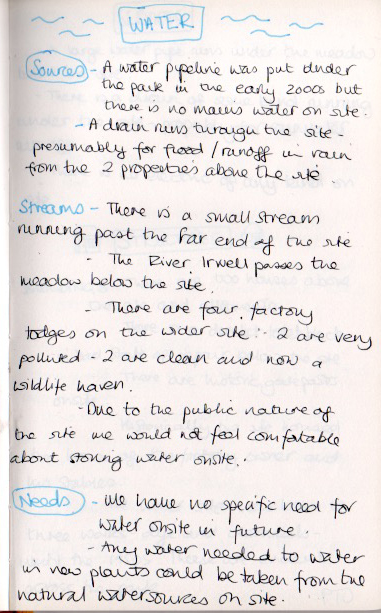 WATER
Sources - A water pipeline was put under
the park in the early 2000s but
there is no mains water on site.
- A drain runs through the site -
presumably for flood/runoff in rain
from the 2 properties above the site
Streams - There is a small stream
running past the far end of the site
- The River Irwell passes the
meadow below the site.
- There are four factory
lodges on the wider site - 2 are very
polluted - 2 are clean and now a
wildlife haven.
- Due to the public nature of
the site we would not feel comfortable
about storing water onsite.
Needs - We have no specific need for
water onsite in future.
- Any water needed to water
in new plants could be taken from the
natural watersources on site.